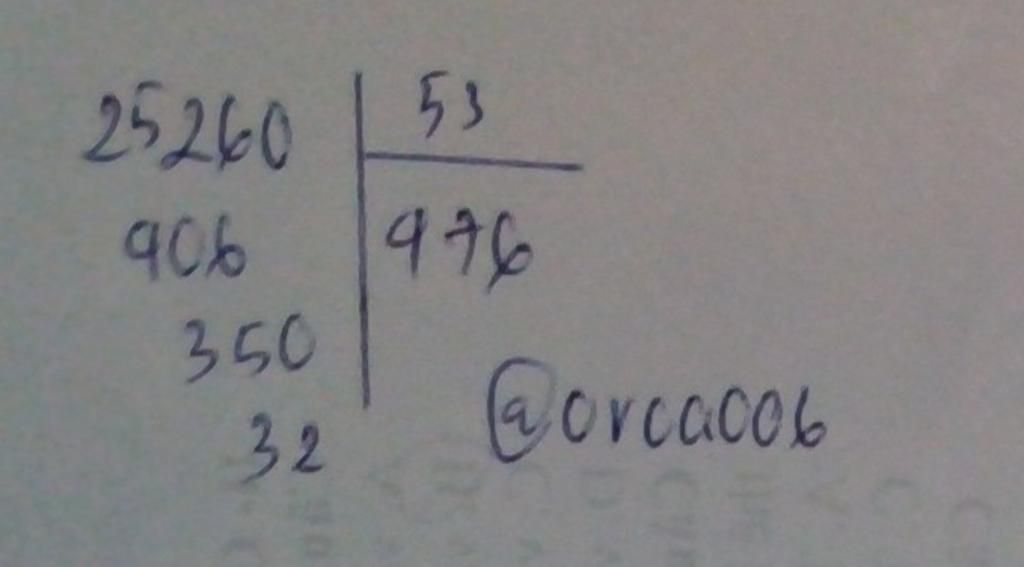 25260 53
406 476
350
32
@orca006